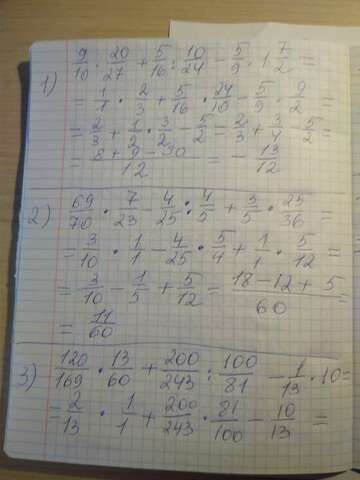 1) 9/10 · 20/27 + 5/16 : 10/24 - 5/9 · 1 7/2 =
= 1/1 · 2/3 + 5/16 · 24/10 - 5/9 · 9/2 =
= 2/3 + 1/2 · 3/2 - 5/2 = 2/3 + 3/4 - 5/2 =
= (8 + 9 - 30)/12 = - 13/12
2) 69/70 · 7/23 - 4/25 : 4/5 + 3/5 · 25/36 =
= 3/10 · 1/1 - 4/25 · 5/4 + 1/1 · 5/12 =
= 3/10 - 1/5 + 5/12 = (18 - 12 + 5)/60 =
= 11/60
3) 120/169 · 13/60 + 200/243 : 100/81 - 1/13 · 10 =
= 2/13 · 1/1 + 200/243 · 81/100 - 10/13 =